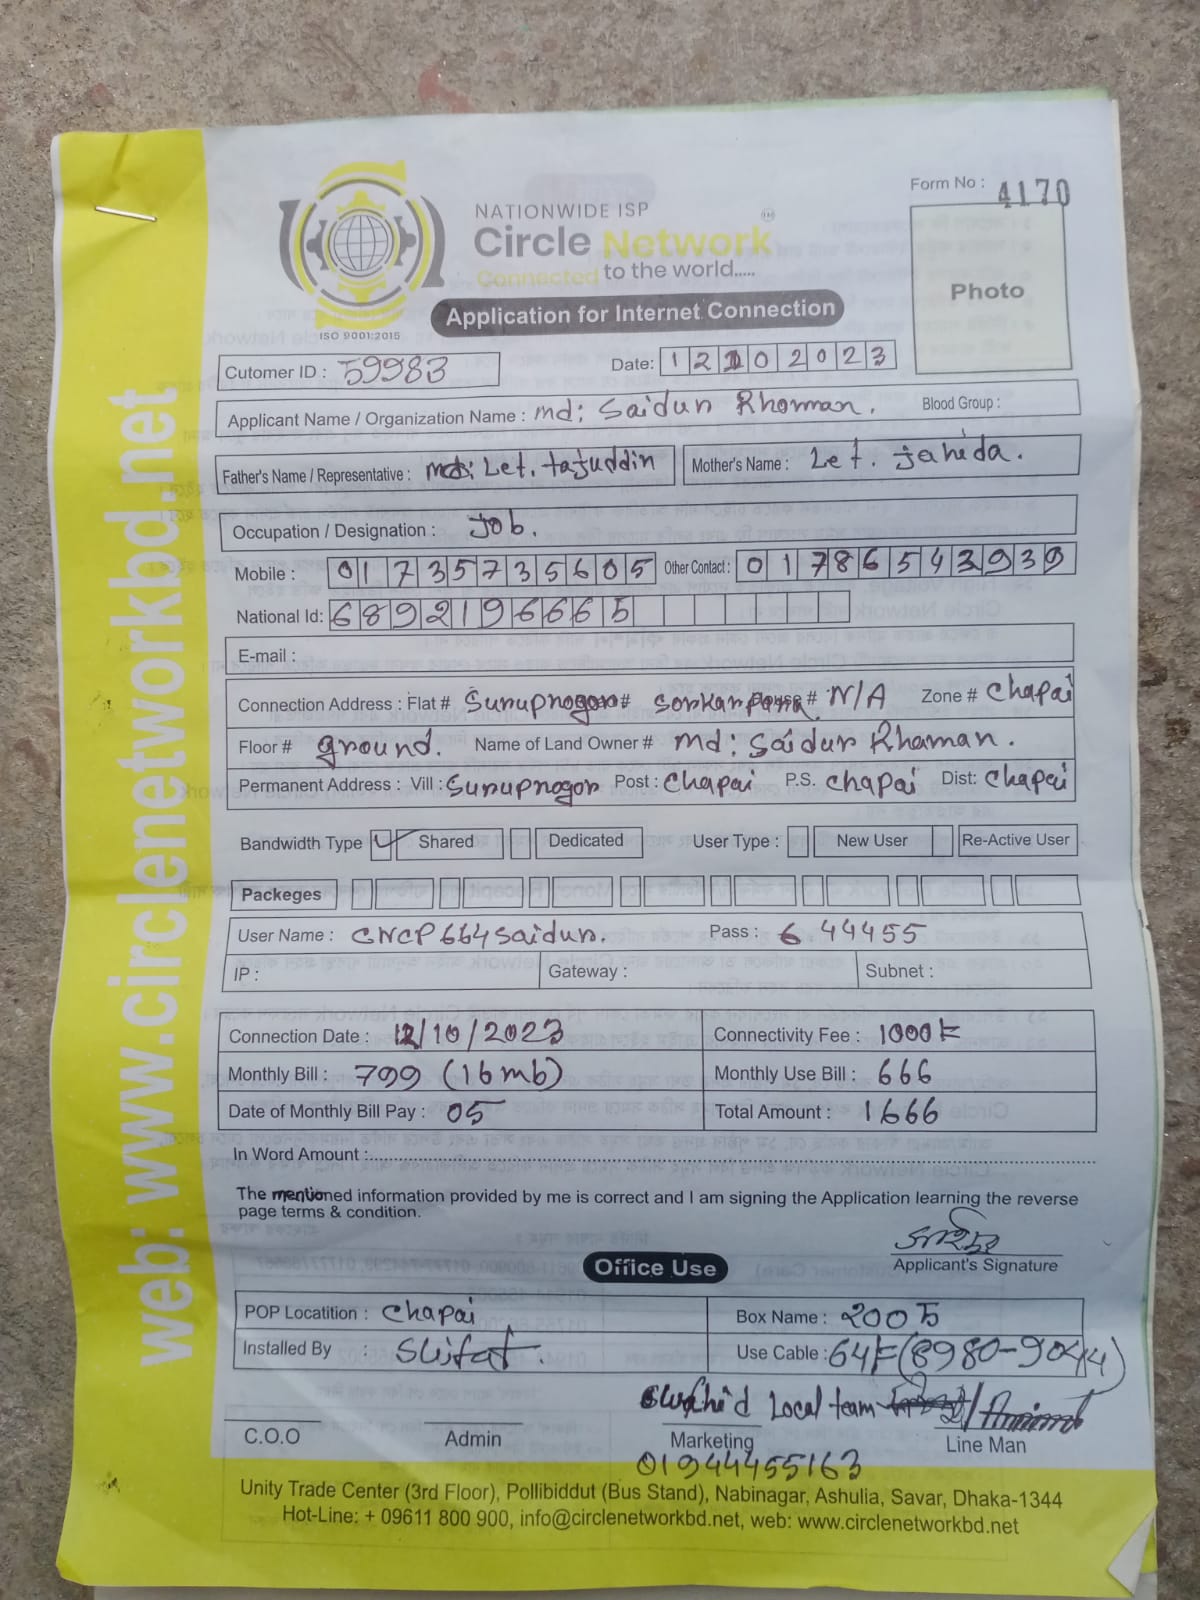 Form No : 4170
NATIONWIDE ISP
Circle Network TM
Connected to the world.....
ISO 9001:2015
Application for Internet Connection
Photo
Cutomer ID : 59983
Date: 12 10 2023
Applicant Name / Organization Name : md: Saidur Rhaman. Blood Group :
Father's Name / Representative : md: Let. tajuddin Mother's Name : Let. Jahida.
Occupation / Designation : Job.
Mobile : 01735735605 Other Contact : 01786543939
National Id: 6892196665
E-mail :
Connection Address : Flat # Surupnogor # Sorkarpara House # N/A Zone # Chapai
Floor # ground. Name of Land Owner # md: Saidur Rhaman.
Permanent Address : Vill : Surupnogor Post : Chapai P.S. chapai Dist: Chapai
Bandwidth Type Shared Dedicated User Type : New User Re-Active User
Packeges
User Name : CNCP664Saidur. Pass : 644455
IP : Gateway : Subnet :
Connection Date : 12/10/2023 Connectivity Fee : 1000
Monthly Bill : 799 (16mb) Monthly Use Bill : 666
Date of Monthly Bill Pay : 05 Total Amount : 1666
In Word Amount :
The mentioned information provided by me is correct and I am signing the Application learning the reverse
page terms & condition.
Applicant's Signature
Office Use
POP Locatition : Chapai Box Name : 2005
Installed By : Sifat. Use Cable : 64F (8980-9044)
Local team
C.O.O Admin Marketing Line Man
01944455163
Unity Trade Center (3rd Floor), Pollibiddut (Bus Stand), Nabinagar, Ashulia, Savar, Dhaka-1344
Hot-Line: + 09611 800 900, info@circlenetworkbd.net, web: www.circlenetworkbd.net
web: www.circlenetworkbd.net